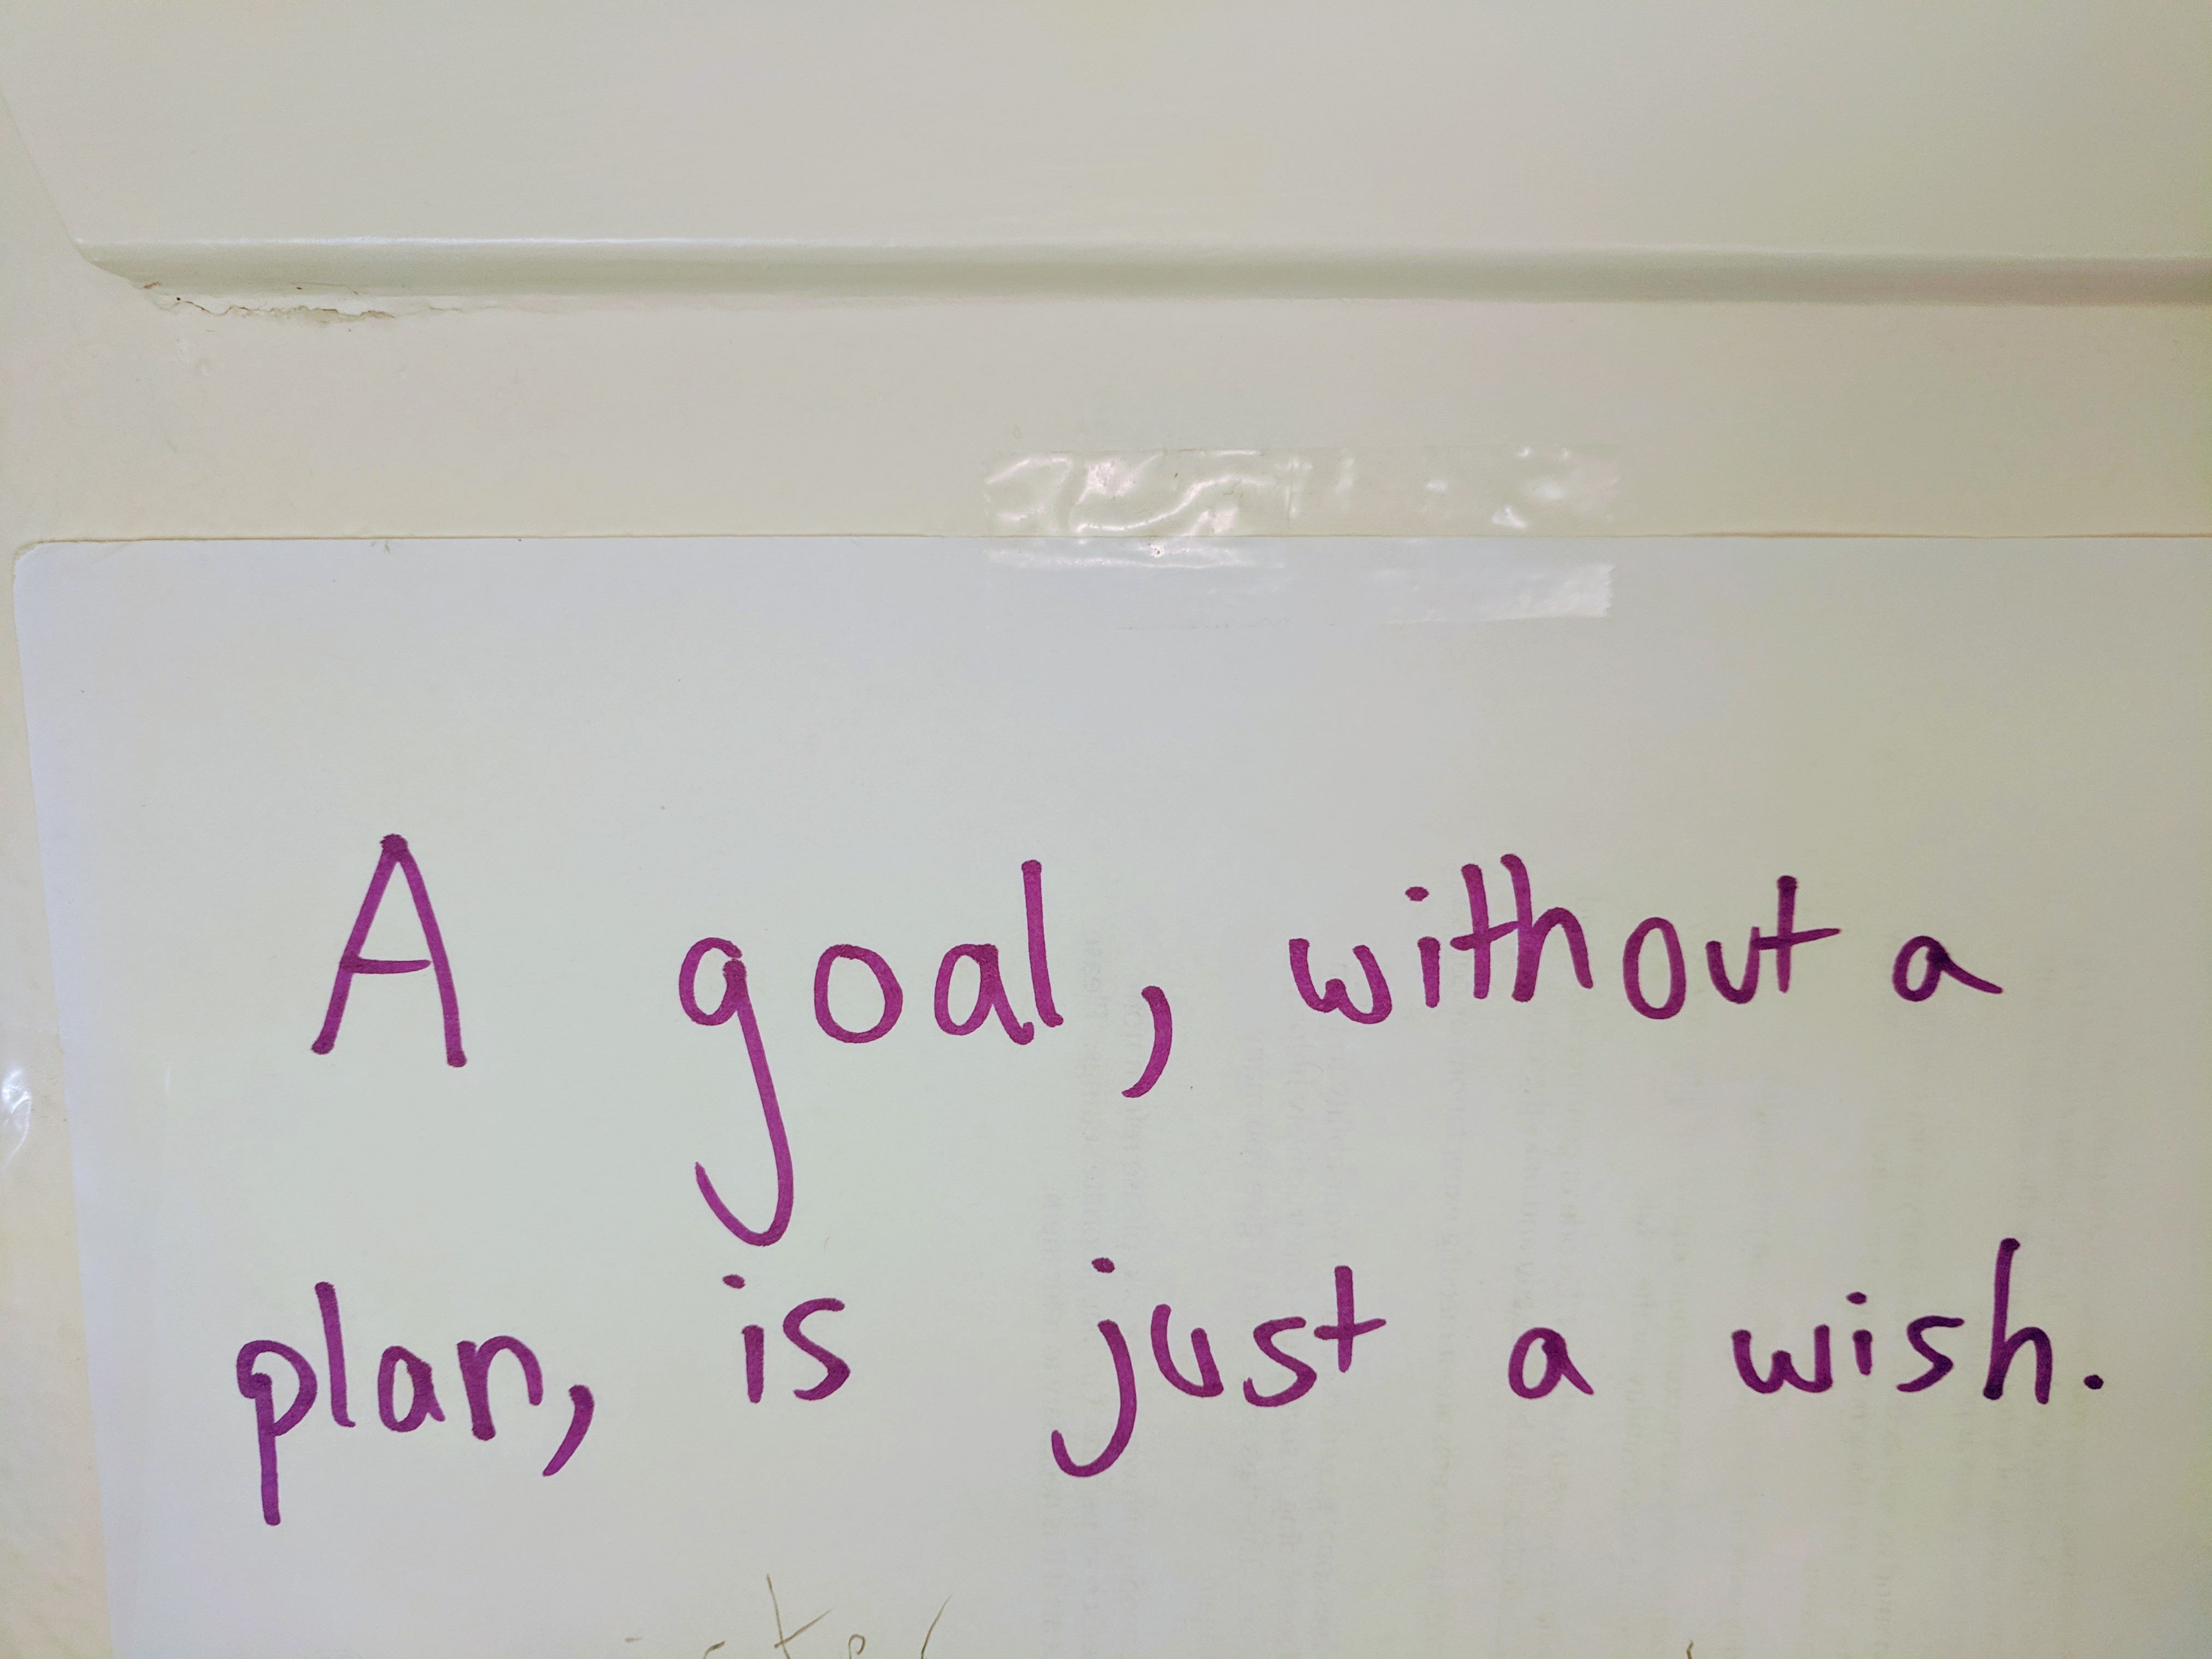 A goal, without a
plan, is just a wish.